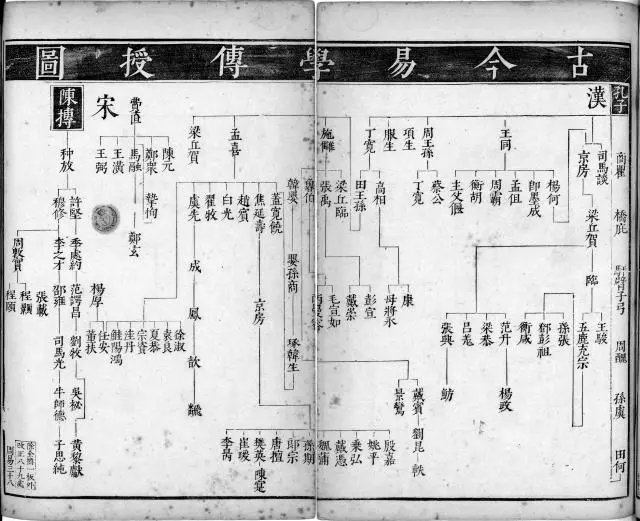 古今易學傳授圖
孔子
商瞿
橋庇
馯臂子弓
周醜
孫虞
田何
漢
王同
周王孫
項生
服生
丁寬
施讎
孟喜
梁丘賀
司馬談
京房
楊何
即墨成
孟但
周霸
衡胡
主父偃
蔡公
丁寬
高相
田王孫
梁丘臨
張禹
韓嬰
蓋寬饒
焦延壽
趙賓
白光
翟牧
虞先
梁丘賀
臨
王駿
五鹿充宗
孫張
鄧彭祖
衡咸
范升
楊政
梁恭
呂羌
張興
魴
康
毋將永
彭宣
戴崇
毛宣如
嬰孫商
涿韓生
京房
成
鳳
歆
龔
戴賓
劉昆
軼
景鸞
殷嘉
姚平
乘弘
戴憑
孫期
郎宗
唐檀
樊英
陳寔
崔瑗
李昺
徐淑
袁良
夏恭
宗資
洼丹
觟陽鴻
任安
楊厚
董扶
費直
陳元
鄭衆
馬融
王潢
王弼
摯恂
鄭玄
宋
陳摶
种放
許堅
穆修
季處約
李之才
周敦實
范諤昌
邵雍
張載
程顥
程頤
劉牧
司馬光
吳祕
牛師德
黃黎獻
子思純